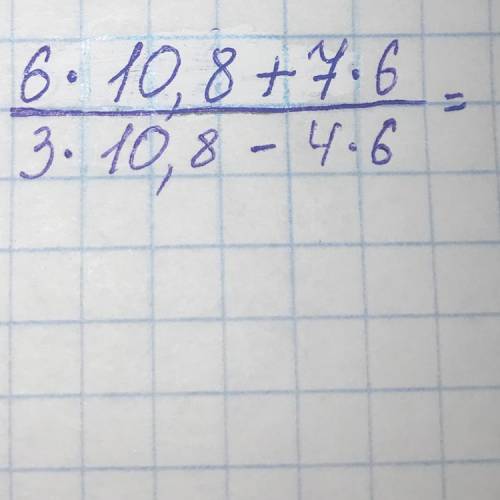 6· 10,8+7·6
=
3· 10,8 - 4·6